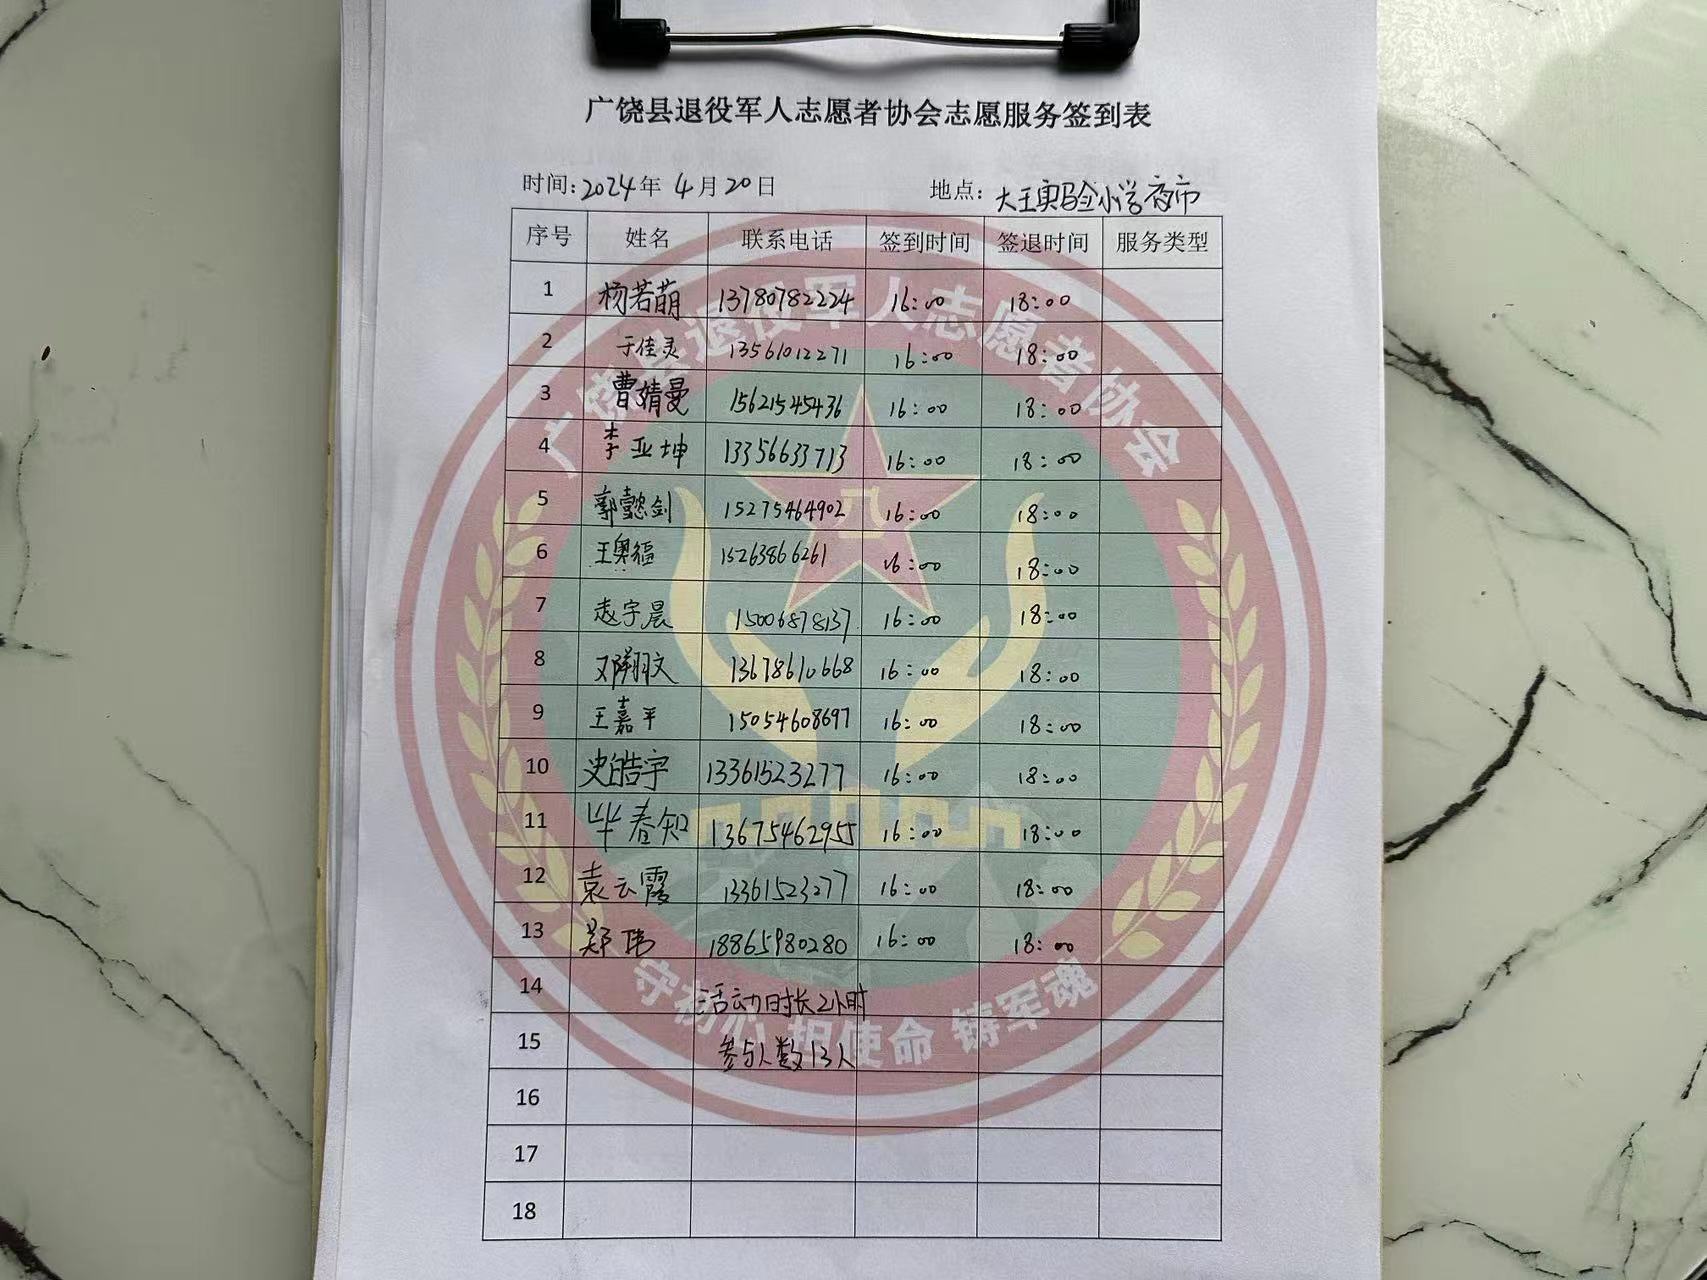 广饶县退役军人志愿者协会志愿服务签到表
时间:2024年 4月20日 地点:大王实验小学夜市
序号 姓名 联系电话 签到时间 签退时间 服务类型
1 杨若萌 13780782224 16:00 18:00
2 于佳灵 13561012271 16:00 18:00
3 曹婧曼 15621545436 16:00 18:00
4 李亚坤 13356633713 16:00 18:00
5 郭懿剑 15275464902 16:00 18:00
6 王奥福 15263866261 16:00 18:00
7 赵宇晨 15006878137 16:00 18:00
8 邓翔文 13678610668 16:00 18:00
9 王嘉平 15054608697 16:00 18:00
10 史皓宇 13361523277 16:00 18:00
11 毕春知 13675462955 16:00 18:00
12 袁云霞 13361523277 16:00 18:00
13 郑玮 18865980280 16:00 18:00
14 活动时长2小时
15 参与人数13人
16
17
18
广饶县退役军人志愿者协会
八一
守初心 担使命 铸军魂